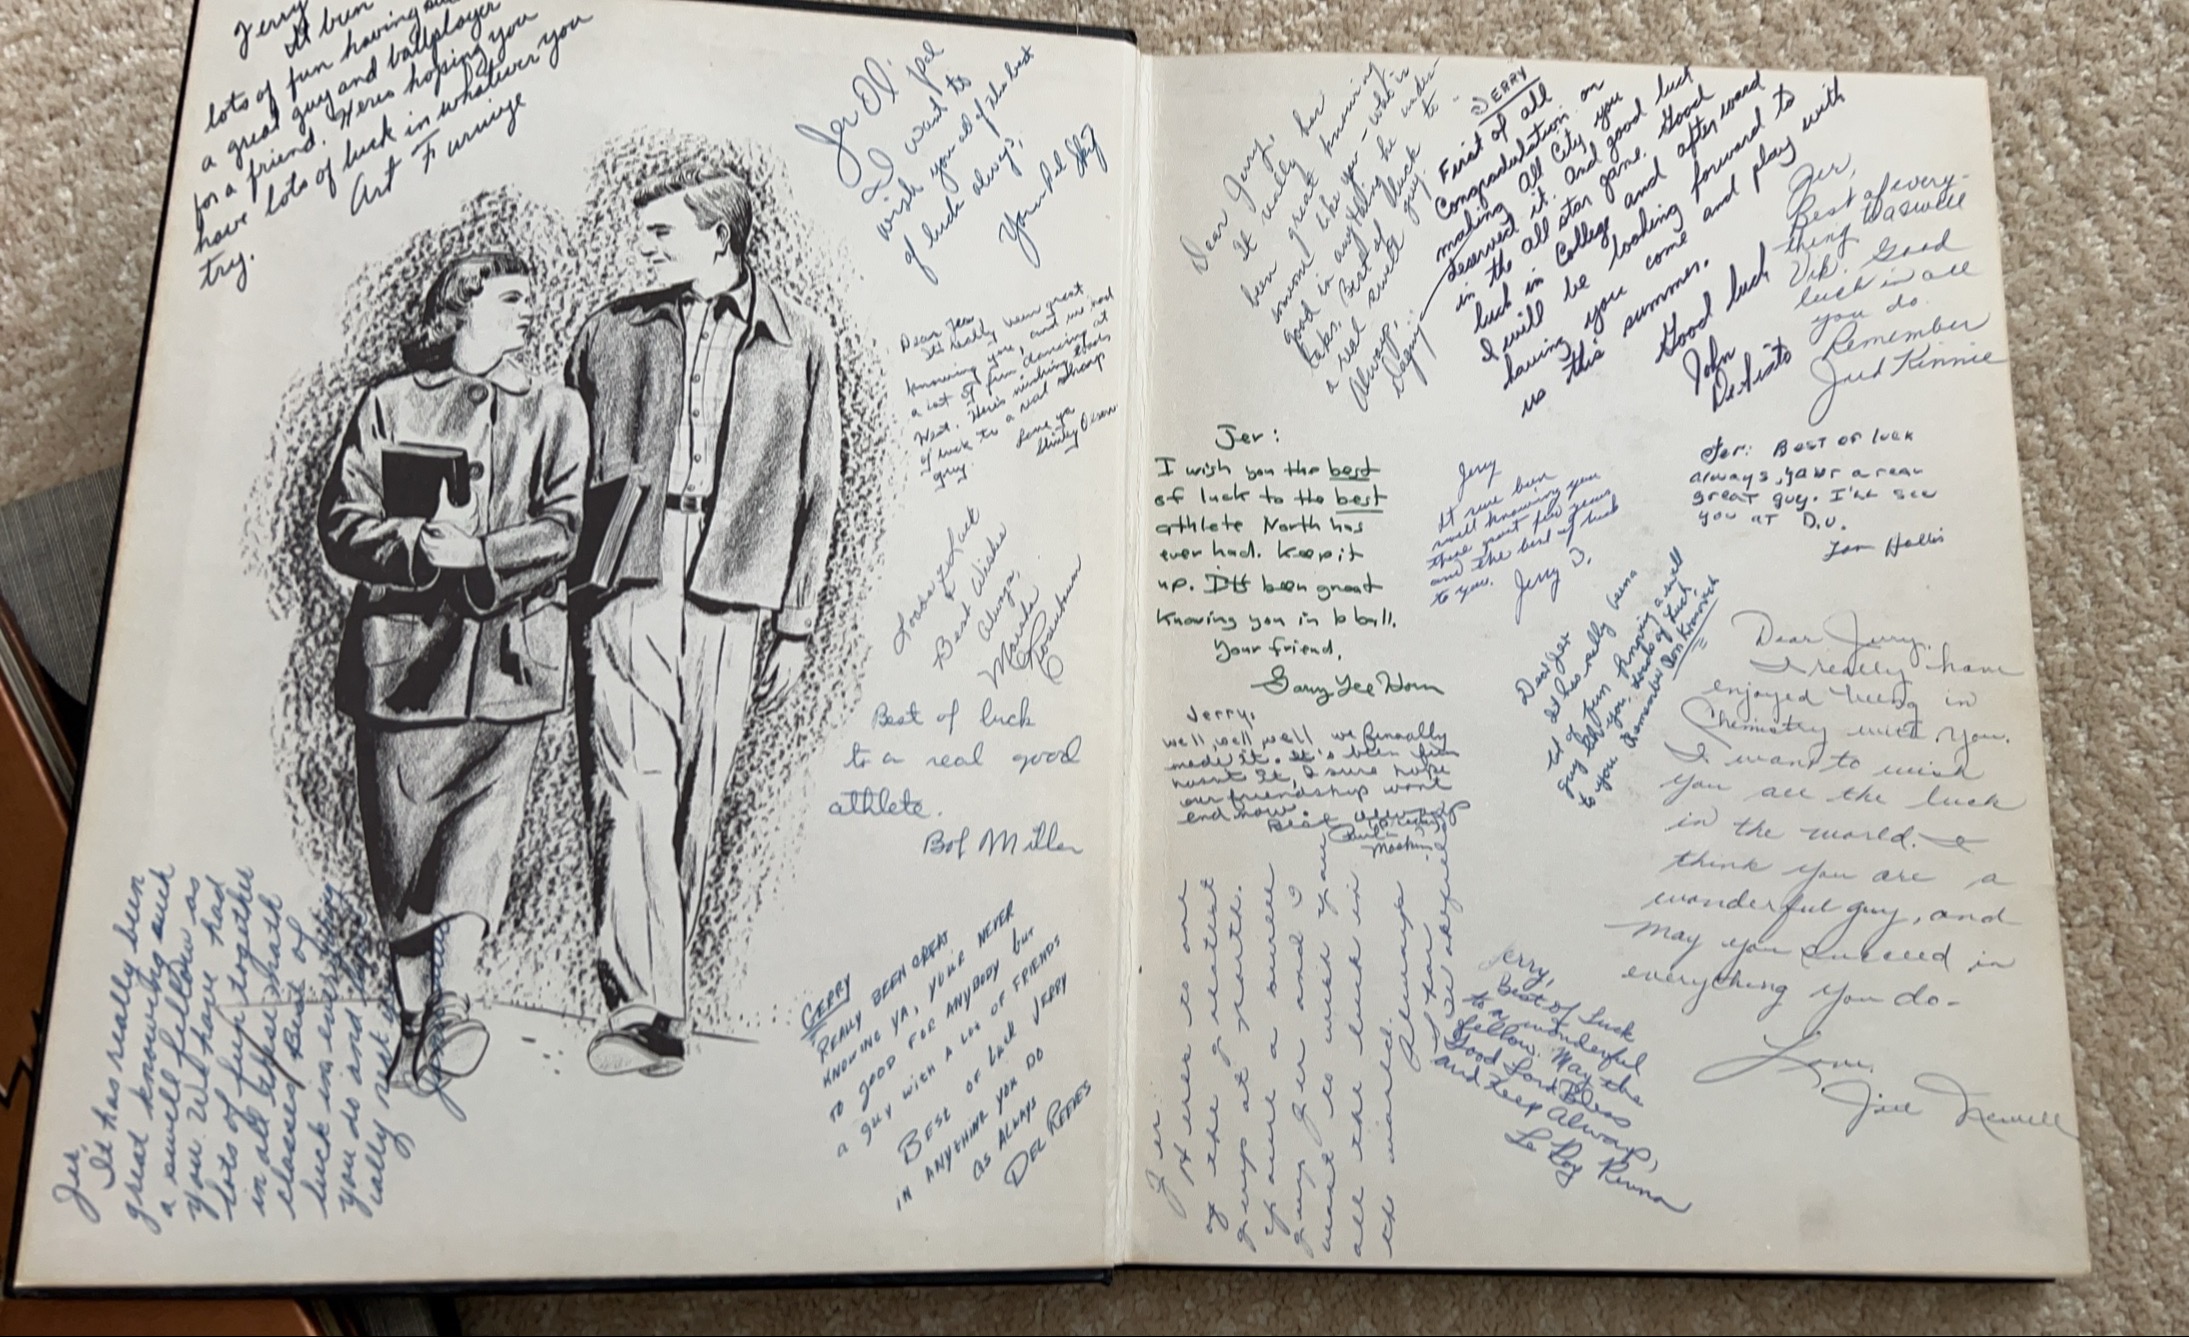 Jerry
It been
lots of fun having such
a great guy and ballplayer
for a friend. Heres hoping you
have lots of luck in whatever you
try.
Art Furniye
Jer Ol' pal
I want to
wish you all of the best
of luck always,
Your Pal Skip
Dear Jer
its really been great
knowing you, and we had
a lot of fun dancing at
West. Here's wishing loads
of luck to a real sharp
guy.
Love ya
Shirley
Loads of Luck
&
Best Wishes
Always
Marsha
Best of luck
to a real good
athlete.
Bob Miller
GERRY
REALLY BEEN GREAT
KNOWING YA, YOUR NEVER
TO GOOD FOR ANYBODY but
a guy WITH A LOT OF FRIENDS
BEST OF LUCK JERRY
IN ANYTHING YOU DO
AS ALWAYS
DEL REEVES
Jer,
It has really been
great knowing such
a swell fellow as
you. We have had
lots of fun together
in all these math
classes. Best of
luck in everything
you do and
Dear Jerry,
It really has
been great knowing
someone like you - what is
good in anything he under-
takes. Best of luck to
a real swell guy.
Always,
Dagny
JERRY
First of all
Congradulation on
making All City, you
deserved it. And good luck
in the all star game. Good
luck in College and afterward
I will be looking forward to
having you come and play with
us this summer.
Good luck
John
DeSisto
Jer,
Best of every-
thing. Twas well
Vik. Good
luck in all
you do.
Remember
Jud Kinnie
Jer:
I wish you the best
of luck to the best
athlete North has
ever had. Keep it
up. It's been great
knowing you in b ball.
Your friend,
Gary Lee Horn
Jerry
It sure been
swell knowing you
these great few years
and the best of luck
to you.
Jerry D.
Jer: Best of luck
always, your a real
great guy. I'll see
you at D.U.
Tom Hollis
Dear Jer
It has really been
lot of fun knowing a swell
guy like you. Loads of luck,
to you. Remember Don
Jerry,
well, well, well we finnally
made it. It's been fun
hasnt it, I sure hope
our friendship wont
end now.
Best
Dear Jerry,
I really have
enjoyed being in
Chemistry with you.
I want to wish
you all the luck
in the world. I
think you are a
wonderful guy, and
may you succeed in
everything you do-
Love,
Jill Newell
Jer
Heres to one
of the greatest
guys at North.
your a swell
guy Jer and I
want to wish you
all the luck in
the world.
Always
Jerry,
Best of Luck
to a wonderful
fellow. May the
Good Lord Bless
and keep Always,
Le Roy